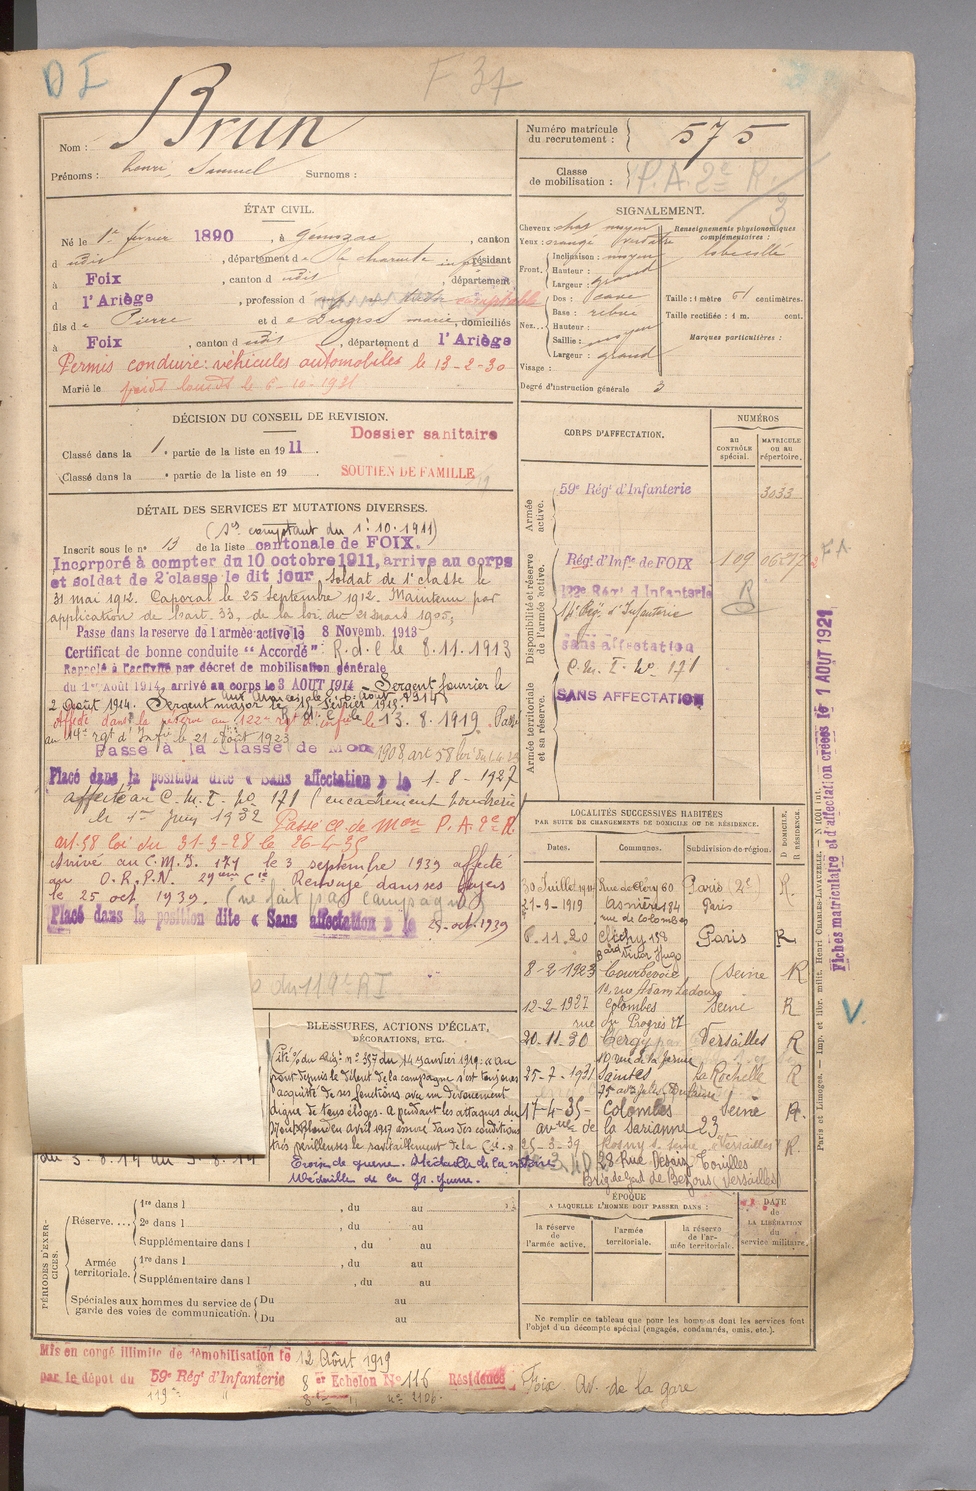 D I
F 37
Nom : Brun
Prénoms : henri, Samuel Surnoms :
Numéro matricule du recrutement : 575
Classe de mobilisation : P. A. 2e R. /3
ÉTAT CIVIL.
Né le 1er février 1890, à gémozac, canton
d udit, département de la charente infre, résidant
à Foix, canton d udit, département
d l'Ariège, profession d comptable
fils de Pierre et de marie, domiciliés
à Foix, canton d udit, département d l'Ariège
Permis conduire : véhicules automobiles le 13-2-30
Marié le
poids lourds le 6-10-1931
SIGNALEMENT.
Cheveux chat moyen
Yeux : orangé verdâtre
Front. Inclinaison : moyen
Hauteur : grand
Largeur : grand
Nez. Dos : cave
Base : relevé
Hauteur :
Saillie : moyen
Largeur : grand
Visage :
Degré d'instruction générale 3
Renseignements physionomiques complémentaires :
Taille : 1 mètre 61 centimètres.
Taille rectifiée : 1 m. cent.
Marques particulières :
DÉCISION DU CONSEIL DE REVISION.
Dossier sanitaire
Classé dans la 1 e partie de la liste en 1911.
Classé dans la e partie de la liste en 19
SOUTIEN DE FAMILLE
DÉTAIL DES SERVICES ET MUTATIONS DIVERSES.
(Ses comptant du 1er 10.1911)
Inscrit sous le no 13 de la liste cantonale de FOIX.
Incorporé à compter du 10 octobre 1911, arrivé au corps
et soldat de 2e classe le dit jour. Soldat de 1e classe le
31 mai 1912. Caporal le 25 septembre 1912. Maintenu par
application de l'art. 33, de la loi du 21 mars 1905,
Passé dans la réserve de l'armée active le 8 Novemb. 1913
Certificat de bonne conduite "Accordé" R.d.C le 8.11.1913
Rappelé à l'activité par décret de mobilisation générale
du 1er Août 1914, arrivé au corps le 3 AOUT 1914. Sergent fourrier le
2 août 1914. Sergent major le 15 février 1915.
Affecté dans la réserve au 122e rgt d'infrie le 13.8.1919. Passé
au 14e rgt d'Infie le 21 Août 1923
Passé à la Classe de Mon 1908, art 58 loi du 1.4.23
Placé dans la position dite « Sans affectation » le 1-8-1927
affecté au C.M.I. no 171 (encadrement poudrerie
le 1er Juin 1932 Passé cl. de Mon P.A. 2e R.
art. 58 loi du 31-3-28 le 26-4-35
Arrivé au C.M.I. 171 le 3 septembre 1939 affecté
au O.R.P.N. 29ème Cie Renvoyé dans ses foyers
le 25 oct. 1939. (ne fait pas campagne)
Placé dans la position dite « Sans affectation » le 25-oct.1939
du 119e RI
du 3-8-14 au
BLESSURES, ACTIONS D'ÉCLAT,
DÉCORATIONS, ETC.
Cité o/ du Régt no 357 du 14 janvier 1919: « au
front depuis le début de la campagne s'est toujours
acquitté de ses fonctions avec un dévouement
digne de tous éloges. A pendant les attaques du
Mont Blond en avril 1917 assuré dans des conditions
très périlleuses le ravitaillement de la Cie. »
Croix de guerre. Médaille de la victoire
Médaille de la Gr. guerre.
CORPS D'AFFECTATION.
NUMÉROS
au contrôle spécial.
matricule ou au répertoire.
Armée active.
59e Régt d'Infanterie 3033
Disponibilité et réserve de l'armée active.
Régt d'Infie de FOIX 109 06277
122e Régt d'Infanterie
14e Régt d'Infanterie
sans affectation
C.M.I. No 171
Armée territoriale et sa réserve.
SANS AFFECTATION
LOCALITÉS SUCCESSIVES HABITÉES
PAR SUITE DE CHANGEMENTS DE DOMICILE OU DE RÉSIDENCE.
Dates. Communes. Subdivision de région. D DOMICILE. R RÉSIDENCE.
30 Juillet Rue de Cléry 60 Paris (2e) R.
21-9-1919 Asnières 184 Paris
rue de Colombes
6.11.20 Clichy 158 Paris R
Bard Victor Hugo
8-2-1923 Courbevoie (Seine R
10, rue Adam Ledoux
12-2-1927 Colombes Seine R
rue du Progrès 27
20.11.30 Cergy Versailles R
10 rue de la ferme
25-7-1931 Saintes la Rochelle R
17-4-35- Colombes Seine R.
avenue de la 23
25-3-39 Rosny s. Seine Versailles R.
28 Rue
de Bezons (Versailles)
ÉPOQUE
A LAQUELLE L'HOMME DOIT PASSER DANS :
la réserve de l'armée active.
l'armée territoriale.
la réserve de l'armée territoriale.
DATE de LA LIBÉRATION du service militaire.
Ne remplir ce tableau que pour les hommes dont les services font
l'objet d'un décompte spécial (engagés, condamnés, omis, etc.).
PÉRIODES D'EXERCICES.
Réserve.... 1re dans l , du au
2e dans l , du au
Supplémentaire dans l , du au
Armée territoriale. 1re dans l , du au
Supplémentaire dans l , du au
Spéciales aux hommes du service de garde des voies de communication. Du au
Du au
Mis en congé illimité de démobilisation le 12 Août 1919
par le dépôt du 59e Régt d'Infanterie 8er Échelon No 116 Résidence Foix Av. de la gare
119e no 2106.
Fiches matriculaire et d'affectation créées le 1 AOUT 1921
Paris et Limoges. — Imp. et libr. milit. Henri CHARLES-LAVAUZELLE. — N 1001 int.
V.